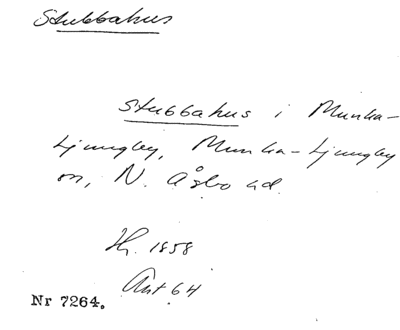 Stubbahus
Stubbahus i Munka-
Ljungby, Munka-Ljungby
sn, N. Åsbo hd.
Hf. 1858
Ant 64
Nr 7264.